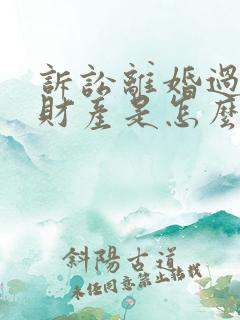 訴訟離婚過
財產是怎麼
斜陽古道
未經同意禁止轉載